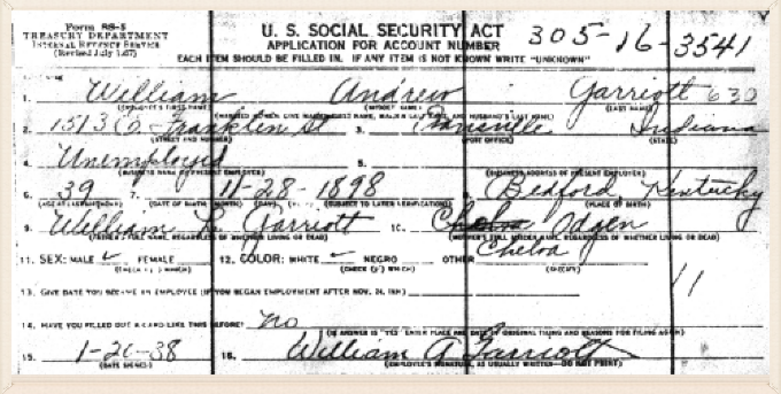 Form SS-5
TREASURY DEPARTMENT
INTERNAL REVENUE SERVICE
(Revised July 1937)
U. S. SOCIAL SECURITY ACT
APPLICATION FOR ACCOUNT NUMBER
305-16-3541
EACH ITEM SHOULD BE FILLED IN. IF ANY ITEM IS NOT KNOWN WRITE "UNKNOWN"
1. William Andrew Garriott 630
(EMPLOYEE'S FIRST NAME) (MIDDLE NAME) (LAST NAME)
2. 1513 E. Franklin St 3. Evansville Indiana
(STREET AND NUMBER) (POST OFFICE) (STATE)
4. Unemployed 5.
(BUSINESS NAME OF PRESENT EMPLOYER) (BUSINESS ADDRESS OF PRESENT EMPLOYER)
6. 39 7. 11-28-1898 8. Bedford, Kentucky
(AGE AT LAST BIRTHDAY) (DATE OF BIRTH: (MONTH) (DAY) (SUBJECT TO LATER VERIFICATION) (PLACE OF BIRTH)
9. William L. Garriott 10. Odgen
(FATHER'S FULL NAME, REGARDLESS OF WHETHER LIVING OR DEAD) (MOTHER'S FULL MAIDEN NAME, REGARDLESS OF WHETHER LIVING OR DEAD)
Cheloa
11. SEX: MALE ✓ FEMALE 12. COLOR: WHITE ✓ NEGRO OTHER
(CHECK (✓) WHICH) (CHECK (✓) WHICH) (SPECIFY)
11
13. GIVE DATE YOU BECAME AN EMPLOYEE (IF YOU BEGAN EMPLOYMENT AFTER NOV. 24, 1936)
14. HAVE YOU FILLED OUT A CARD LIKE THIS BEFORE? no
(IF ANSWER IS "YES" ENTER PLACE AND DATE OF ORIGINAL FILING AND REASONS FOR FILING AGAIN)
15. 1-26-38 16. William A Garriott
(DATE SIGNED) (EMPLOYEE'S SIGNATURE, AS USUALLY WRITTEN—DO NOT PRINT)